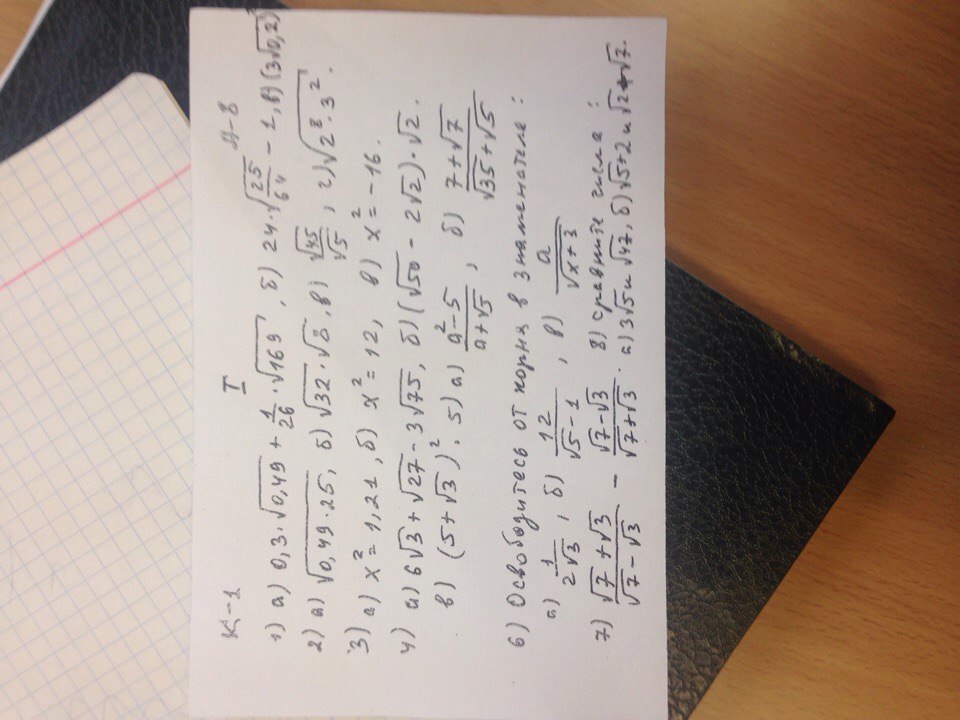 К-1 I А-8
1) а) 0,3·√0,49 + 1/26 · √169, б) 24·√(25/64) - 1, в) (3√0,2)²
2) а) √(0,49·25), б) √32 · √8, в) √45/√5, г) √(2⁸·3²).
3) а) x² = 1,21, б) x² = 12, в) x² = -16.
4) а) 6√3 + √27 - 3√75, б) (√50 - 2√2)·√2.
в) (5+√3)². 5) а) (a²-5)/(a+√5), б) (7+√7)/(√35+√5)
6) Освободитесь от корня в знаменателе:
а) 1/(2√3), б) 12/(√5-1), в) a/√(x+3)
7) (√7+√3)/(√7-√3) - (√7-√3)/(√7+√3). 8) сравните числа:
а) 3√5 и √47, б) √5+2 и √2+√7.